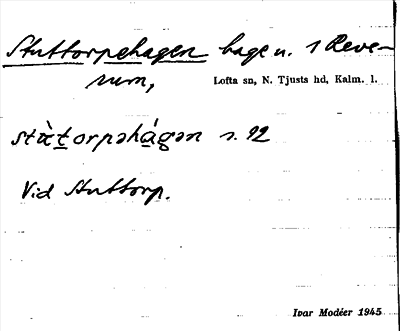 Stuttorpehagen hage u. 1 Reve-
rum,
Lofta sn, N. Tjusts hd, Kalm. l.
stàt̲orpəhágən s. 92
Vid Stuttorp.
Ivar Modéer 1945